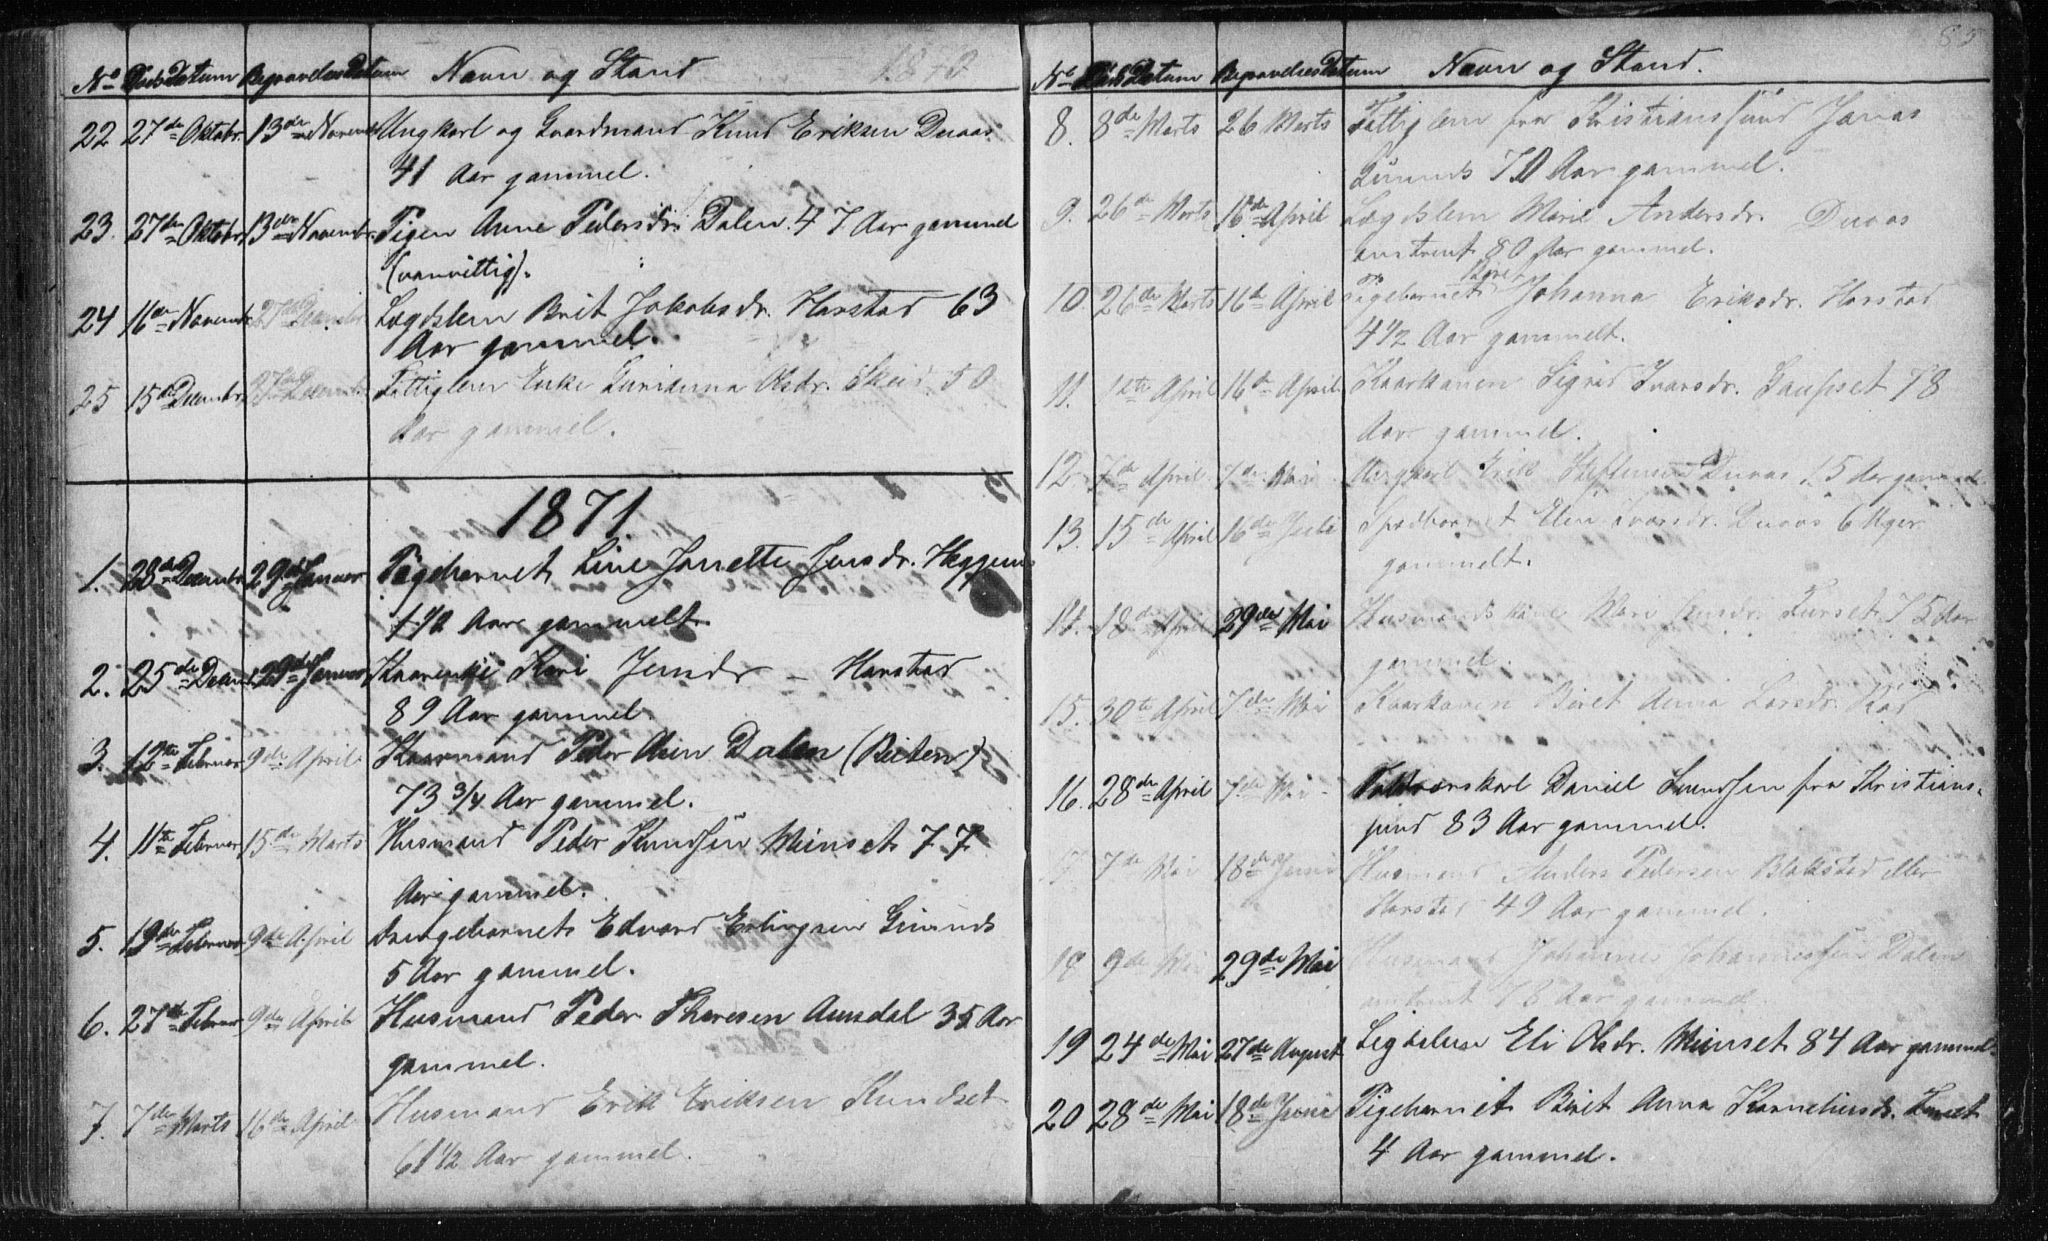 1870
No Døds Datum Begravelses Datum Navn og Stand
22 27de Oktobr. 13de Novembr Ungkarl og Gaardmand Knud Eriksen Duaas
41 Aar gammel.
23. 27de Oktobr. 13de Novembr. Pigen Anne Pedersdr. Dalen. 47 Aar gammel
(vanvittig).
24 16de Novembr 27de Decembr Lægdslem Brit Jakobsdr. Harstad 63
Aar gammel.
25 15de Decembr. 27de Decembr. Fattiglem Enke Olsdr. 50
Aar gammel.
1871.
1. 28de Decembr 29de Januar Pigebarnet Line Janette Jensdr. Heggem
1 1/2 Aar gammelt.
2. 25de Decembr 29de Januar Kaarenke Kari Jensdr - Harstad
89 Aar gammel.
3. 12te Februar 9de April Kaarmand Peder Dalen (Reiten)
73 3/4 Aar gammel.
4. 11te Februar 15de Marts Husmand Peder Knudsen Meinset 77
Aar gammel.
5. 19de Februar 9de April Drengebarnet Edvard Erlingsen
5 Aar gammel.
6. 27de Februar 9de April Husmand Peder Thoresen 35 Aar
gammel.
7. 7de Marts 16de April Husmand Erik Eriksen Knudset
61 1/2 Aar gammel.
85
No Døds Datum Begravelses Datum Navn og Stand.
8. 8de Marts 26 Marts Fattiglem fra Kristianssund Jonas
70 Aar gammel.
9. 26de Marts 16de April Lægdslem Marit Andersdr. Duaas
omtrent 80 Aar gammel.
10. 26de Marts 16de April Pigebarnet Beret Johanna Eriksdr. Harstad
4 1/2 Aar gammelt.
11. April 16de April Kaarkonen Sigrid Ivarsdr. 78
Aar gammel.
12 7de April 7de Mai Ungkarl Erik Duaas 15 Aar gammel
13. 15de April 16de Spædbarnet Elen Ivarsdr. Duaas 6 Uger
gammelt.
14. 18de April 29de Mai Husmandskone Furset 75 Aar
gammel.
15. 30te April 7de Mai Kaarkonen Beret Anna Larsdr.
16. 28de April 7de Mai Daniel fra Kristians-
sund 83 Aar gammel.
17. 7de Mai 18de Juni Husmand Anders Pedersen Blakstad eller
Harstad 49 Aar gammel.
18 9de Mai 29de Mai Husmand Johannes Johannessen Dalen
omtrent 78 Aar gammel
19 24de Mai 27de August Eli Olsdr. Meinset 84 Aar gammel.
20 28de Mai 18de Juni Pigebarnet Beret Anna Korneliusdr. Furset
4 Aar gammel.